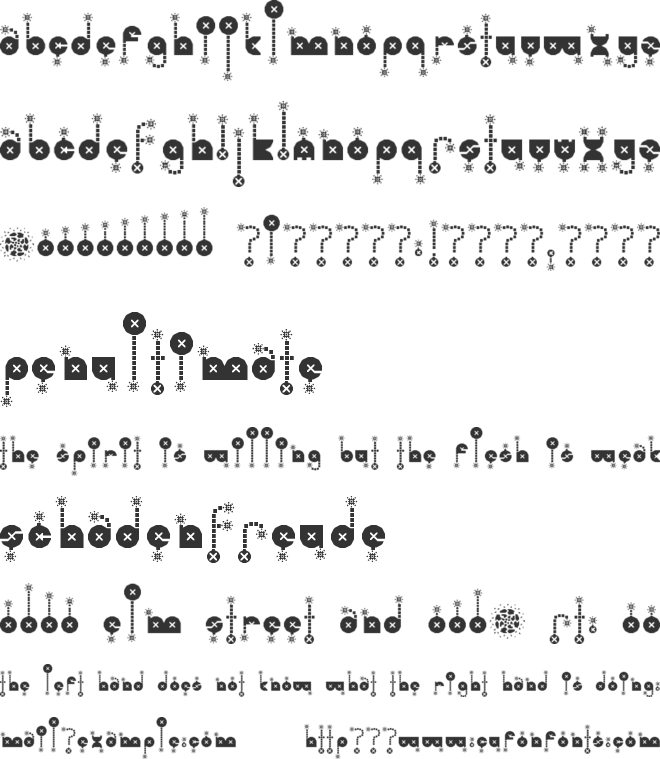 abcdefghijklmnopqrstuvwxyz
abcdefghijklmnopqrstuvwxyz
0123456789
penultimate
the spirit is willing but the flesh is weak
schadenfreude
3964 elm street and 1370 rt. 21
the left hand does not know what the right hand is doing.
mail?example.com http???www.cufonfonts.com